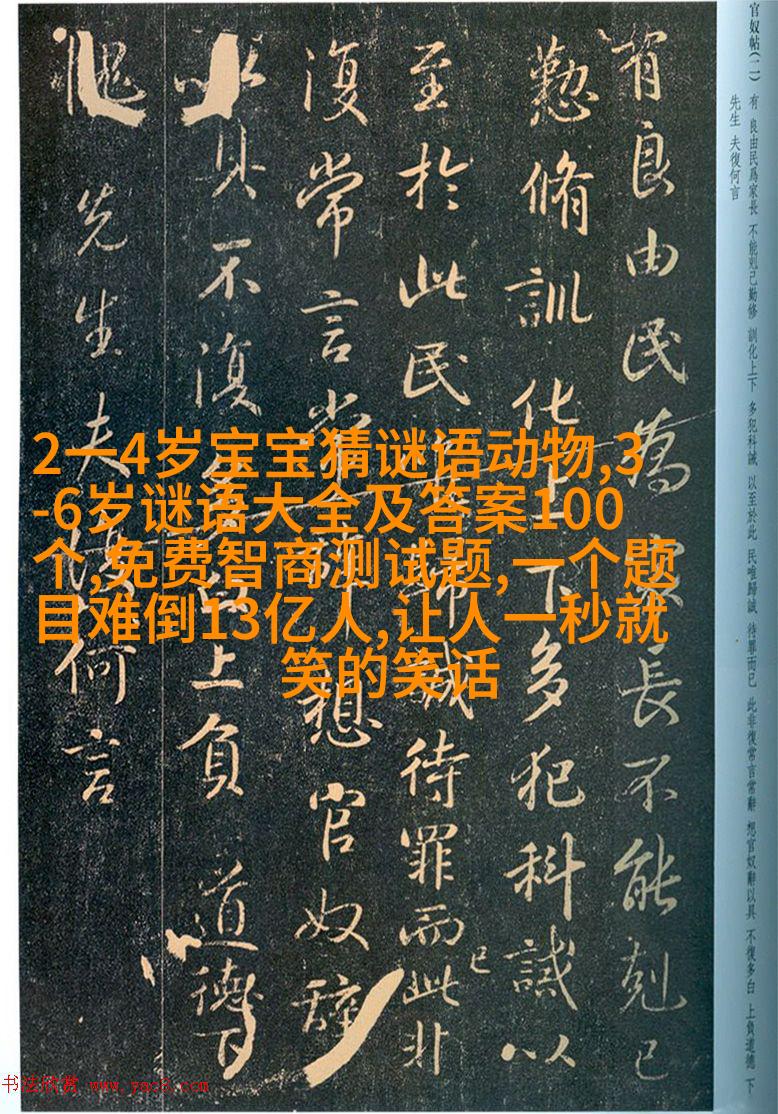 官奴帖(二)
有 良由民爲家長 不能剋己勤修 訓化上下 多犯科誡 以至於此 民唯歸誠 待罪而已 此非復常言常辭 想官奴辭以具 不復多白 上負道德 下
先生 夫復何言
有良由民為家長不能剋己
懃脩訓化上下多犯科誡以
至於此民唯歸誠待罪而已此非
復常言常辭想官奴辭
以具不復多白上負道德下
愧先生夫復何言
2一4岁宝宝猜谜语动物,3
-6岁谜语大全及答案100
个,免费智商测试题,一个题
目难倒13亿人,让人一秒就
笑的笑话
书法欣赏 www.yac8.com